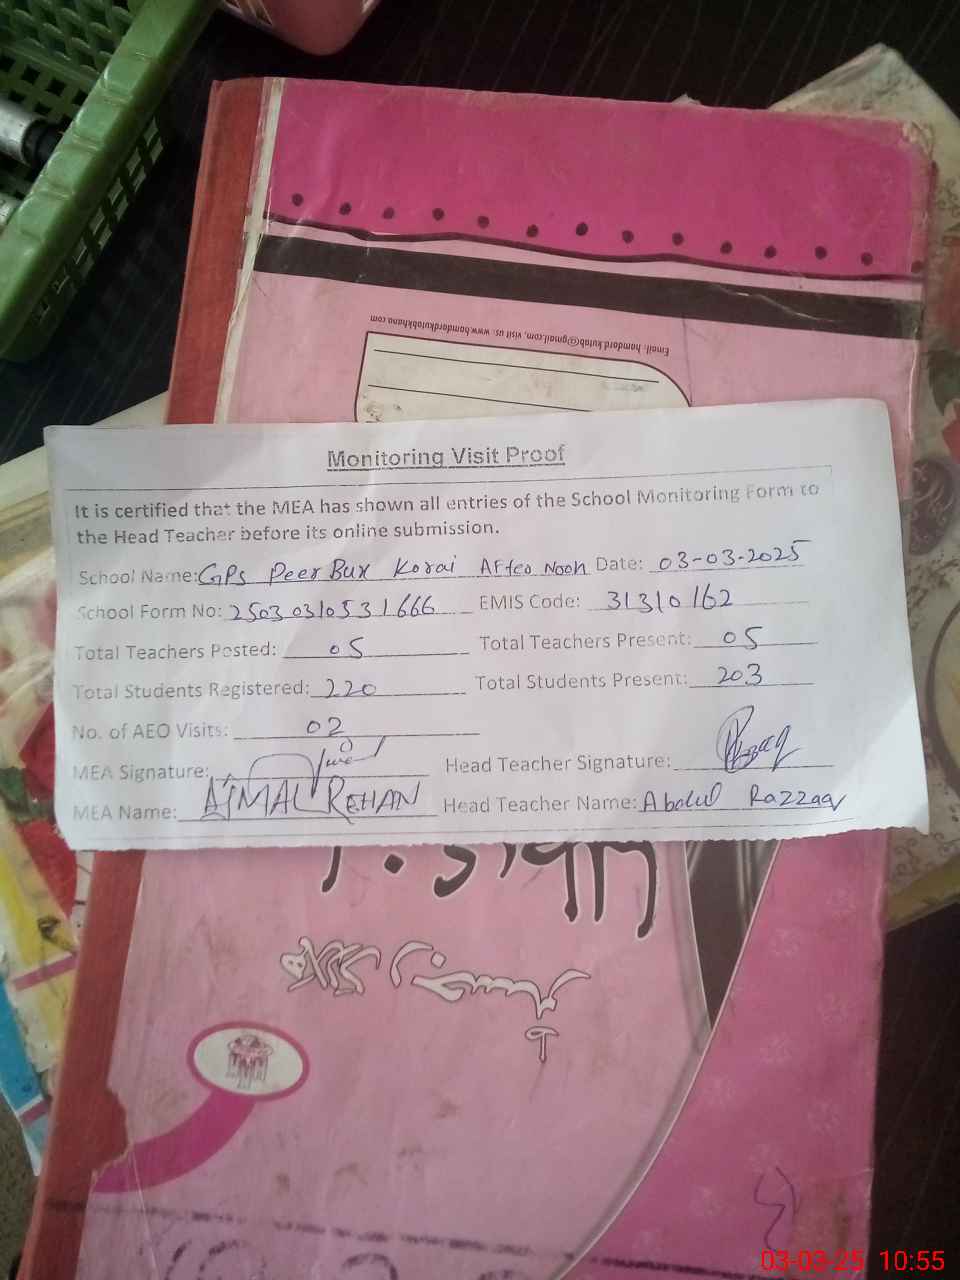 Email: hamdard.kutab@gmail.com, visit us: www.hamdardkutabkhana.com
Monitoring Visit Proof
It is certified that the MEA has shown all entries of the School Monitoring Form to
the Head Teacher before its online submission.
School Name: GPS Peer Bux Korai AFteo Noon Date: 03-03-2025
School Form No: 25030310531666 EMIS Code: 31310162
Total Teachers Posted: 05 Total Teachers Present: 05
Total Students Registered: 220 Total Students Present: 203
No. of AEO Visits: 02
MEA Signature: Head Teacher Signature: Razzaq
MEA Name: AJMAL REHAN Head Teacher Name: Abdul Razzaq
رجسٹر
03-03-25 10:55